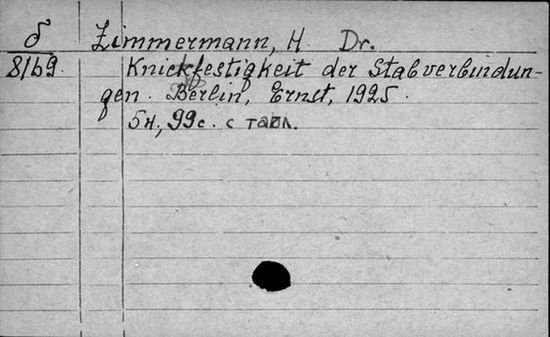 δ Zimmermann, H. Dr.
8/69. Knickfestigkeit der Stabverbindun-
gen. Berlin, Ernst, 1925.
5н., 99с. с табл.